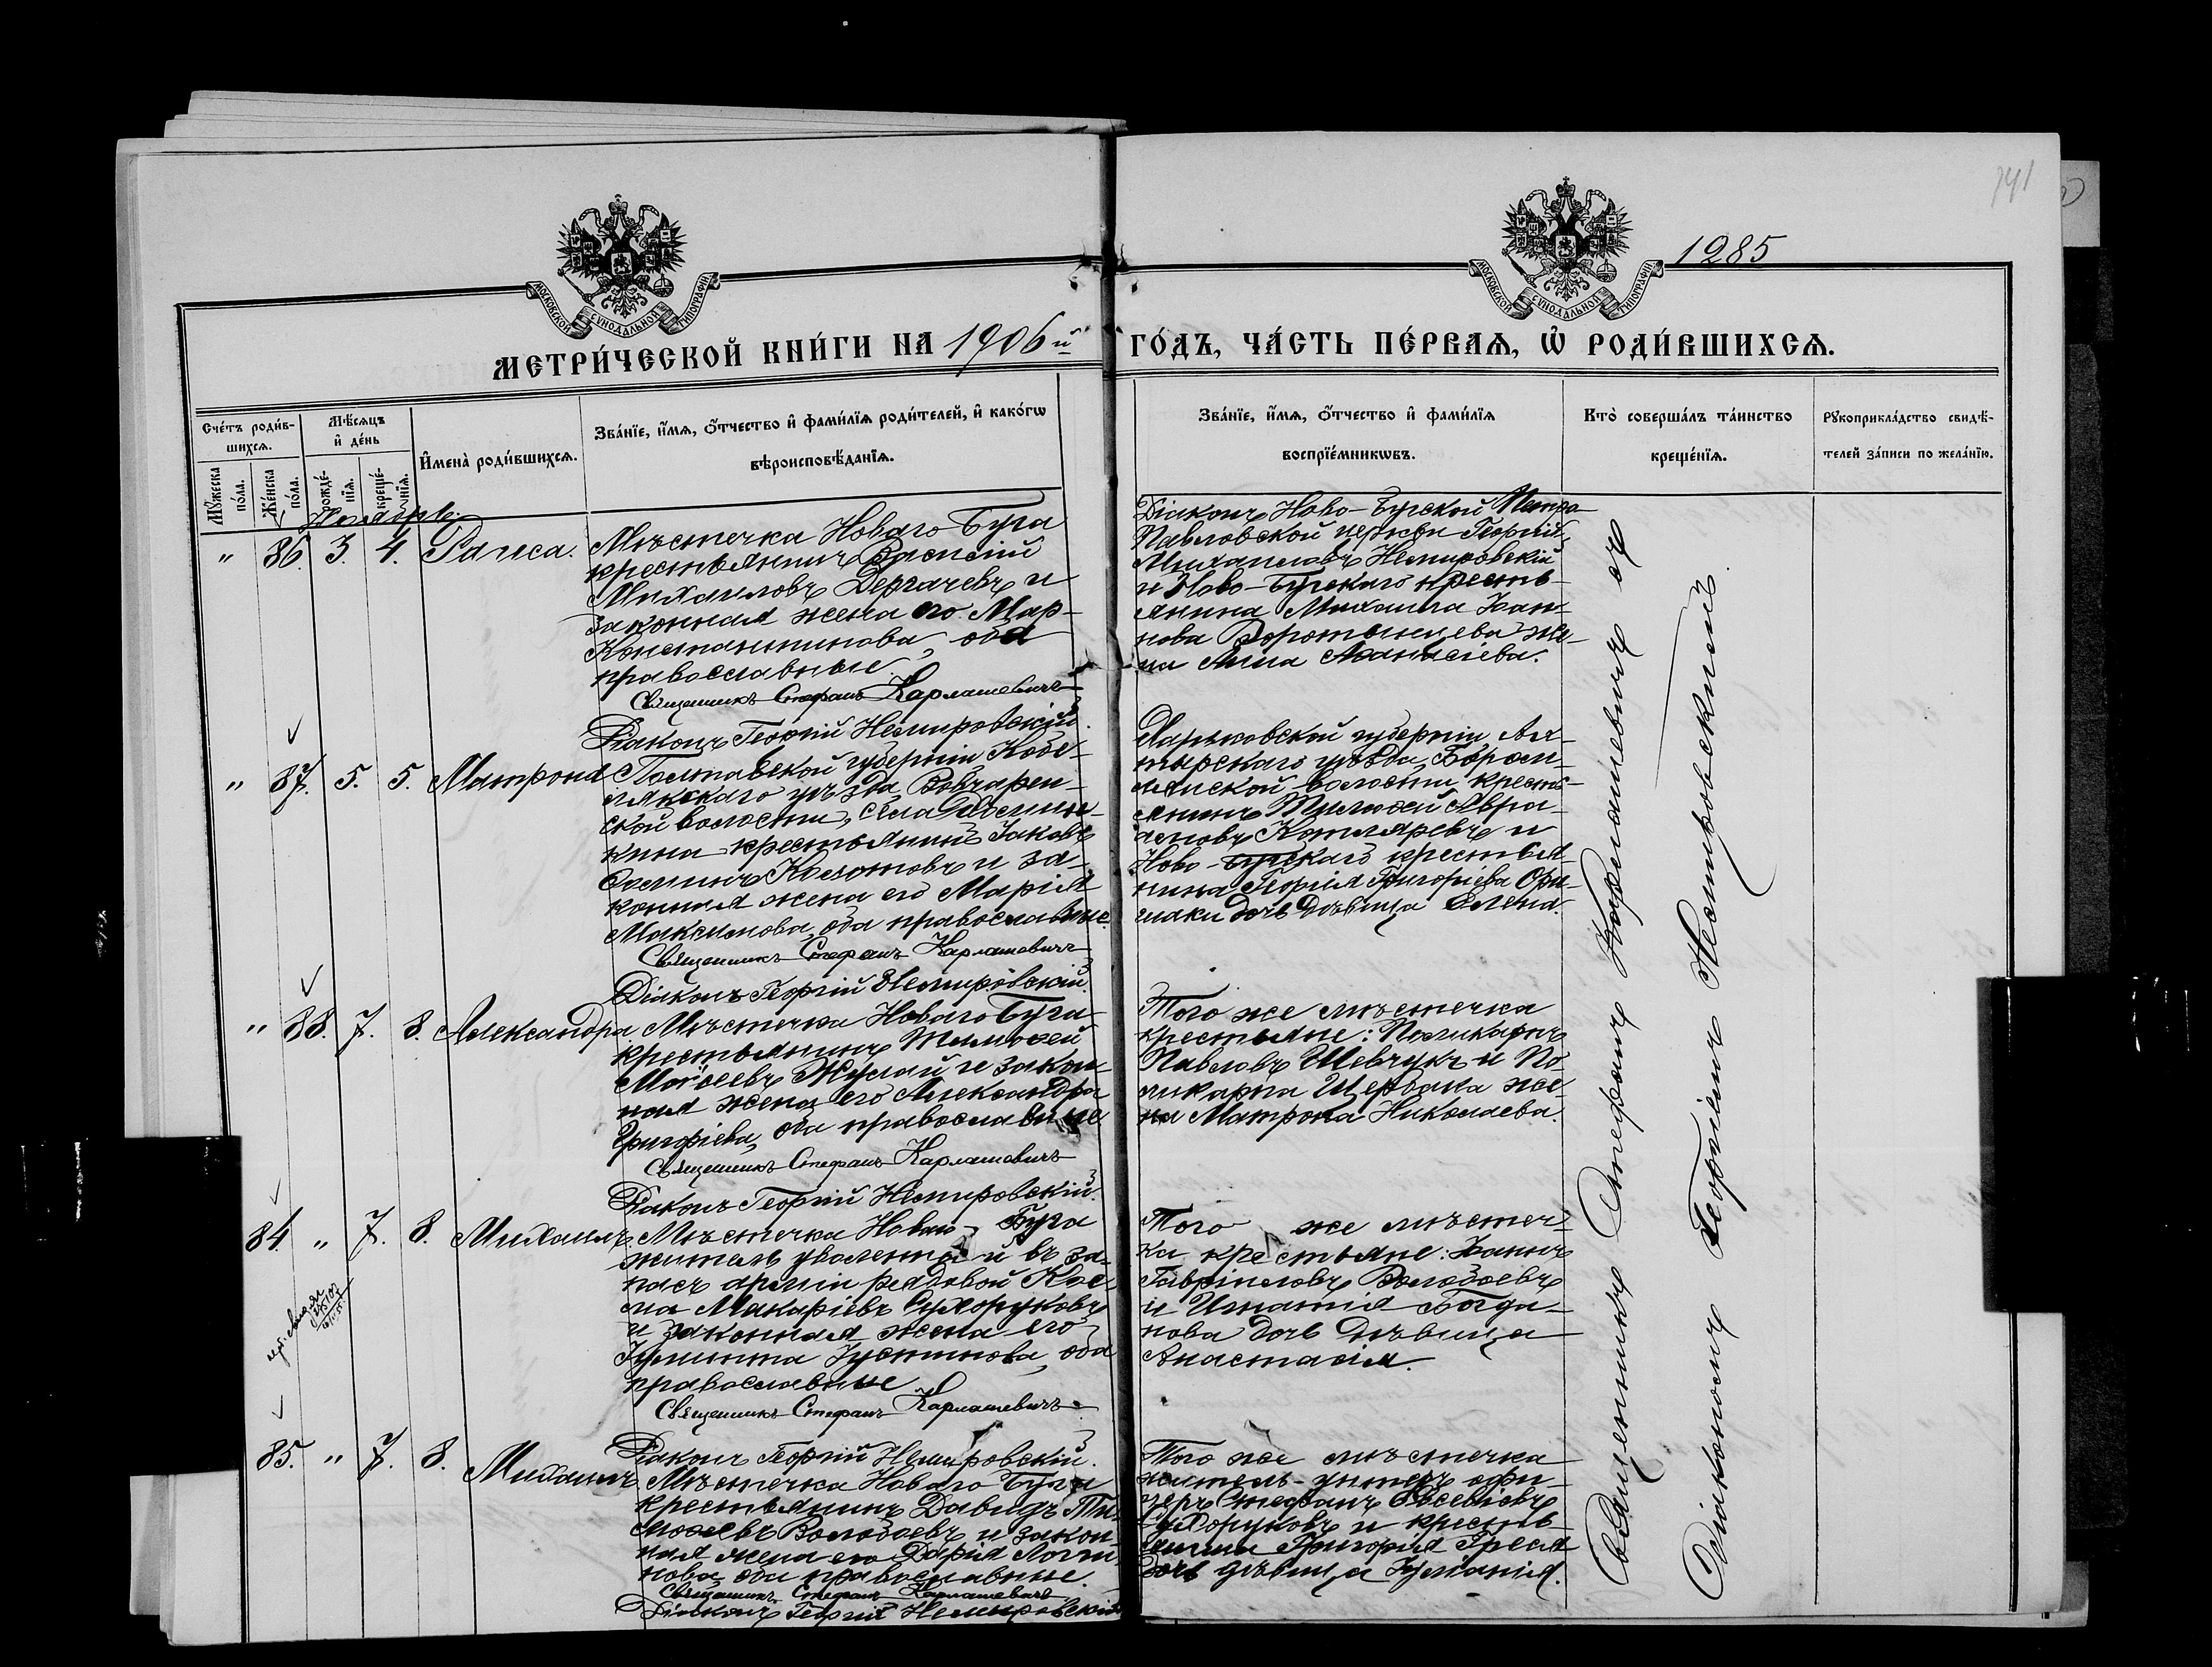 741
1285
МОСКОВСКОЙ СУНОДАЛЬНОЙ ТИПОГРАФІИ
МОСКОВСКОЙ СУНОДАЛЬНОЙ ТИПОГРАФІИ
МЕТРИ́ЧЕСКОЙ КНИ́ГИ НА 1906й ГО́ДЪ, ЧА́СТЬ ПЕ́РВАЯ, Ѡ РОДИ́ВШИХСЯ.
Сче́тъ роди́в-
шихся.
Мꙋжеска
по́ла.
Же́нска
по́ла.
Мѣ́сяцъ
и҆ де́нь
рожде́-
нїя.
креще́-
нїя.
И҆мена̀ роди́вшихся.
Зва́нїе, и҆́мя, ѻ҆́тчество и҆ фами́лїя роди́телей, и҆ како́гѡ
вѣроисповѣ́данїя.
Зва́нїе, и҆́мя, ѻ҆́тчество и҆ фами́лїя
воспрїе́мникѡвъ.
Кто̀ соверша́лъ та́инство
креще́нїя.
Рꙋкоприкла́дство свидѣ́-
телей за́писи по жела́нїю.
Ноябрь.
" 86. 3. 4. Раиса.
Мѣстечка Новаго Буга
крестьянинъ Василій
Михаиловъ Дергачевъ и
законная жена его Мар-
Константинова, оба
православные.
Священникъ Стефанъ Карлашевичъ
Діаконъ Георгій Немировскій.
Діаконъ Ново-Бугской Петро-
Павловской церкви Георгій
Михаиловъ Немировскій
и Ново-Бугскаго кресть-
янина Михаила Іоан-
нова Воротынцева же-
на Анна Аѳанасіева.
" 87. 5. 5. Матрона
Полтавской губерніи Кобе-
лякскаго уѣзда,
ской волости, села
кина крестьянинъ Іаковъ
Коломовъ и за-
конная жена его Марія
Максимова, оба православные.
Священникъ Стефанъ Карлашевичъ
Діаконъ Георгій Немировскій.
Харьковской губерніи Ах-
тырскаго уѣзда, Боромл-
лянской волости, кресть-
янинъ Тимоѳей Авра-
амовъ Котляревъ и
Ново-Бугскаго крестья-
нина Георгія Григоріева Ори-
шаки дочь дѣвица Елена.
" 88. 7. 8. Александра
Мѣстечка Новаго Буга
крестьянинъ Тимоѳей
Моѵсеевъ Жулай и закон-
ная жена его Александра
Григоріева, оба православные
Священникъ Стефанъ Карлашевичъ
Діаконъ Георгій Немировскій.
Того же мѣстечка
крестьяне: Поликарпъ
Павловъ Шевчукъ и По-
ликарпа Щербака же-
на Матрона Николаева.
84. " 7. 8. Михаилъ
Мѣстечка Новаго Буга
житель уволенный въ за-
пасъ арміи рядовой Кос-
ма Макаріевъ Сухоруковъ
и законная жена его
Іулитта Іустинова, оба
православные
Священникъ Стефанъ Карлашевичъ
Діаконъ Георгій Немировскій.
Того же мѣстеч-
ка крестьяне: Іоаннъ
Гавріиловъ Володоевъ
и Игнатія Богда-
нова дочь дѣвица
Анастасія.
85. " 7. 8. Михаилъ
Мѣстечка Новаго Буга
крестьянинъ Давидъ Ти-
моѳеевъ Володоевъ и закон-
ная жена его Дарія Логги-
нова, оба православные.
Священникъ Стефанъ Карлашевичъ
Діаконъ Георгій Немировскій
Того же мѣстечка
житель-унтеръ офи-
церъ Стефанъ Евсевіевъ
Сухоруковъ и кресть-
янина Григорія
дочь дѣвица Іуліанія.
Священникъ Стефанъ Карлашевичъ съ
Діакономъ Георгіемъ Немировскимъ.